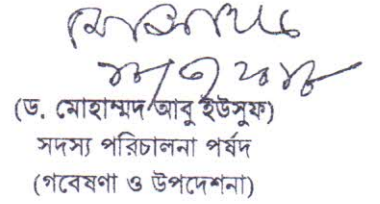 (ড. মোহাম্মদ আবু ইউসুফ)
সদস্য পরিচালনা পর্ষদ
(গবেষণা ও উপদেশনা)